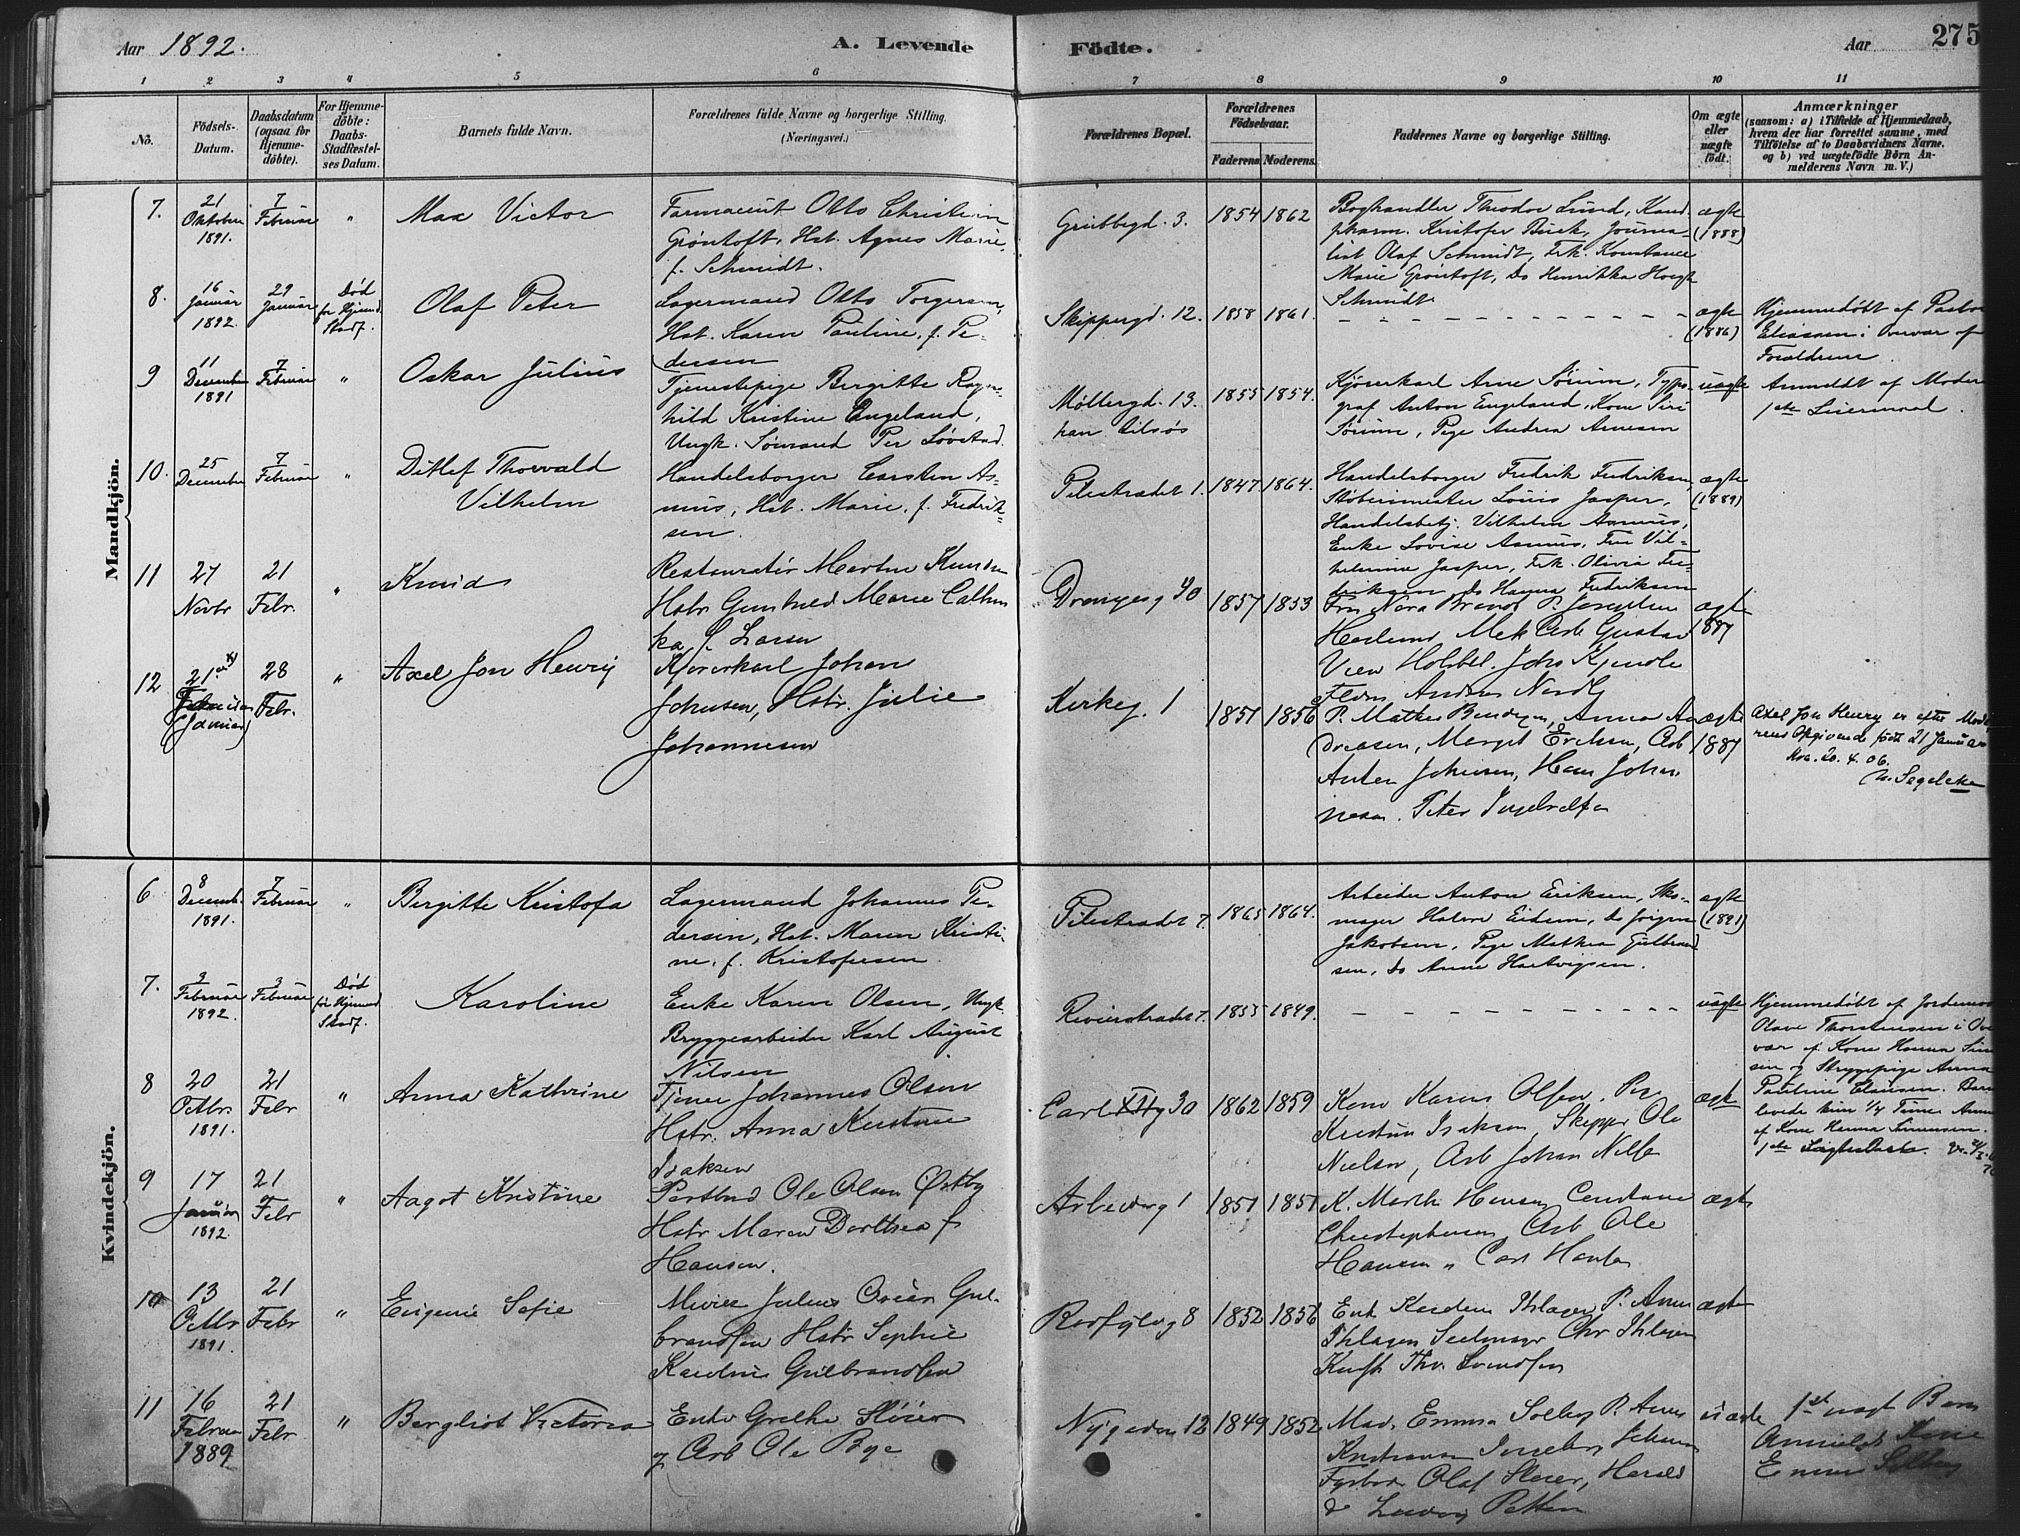 Aar 1892.
A. Levende Födte.
Aar
275
1 2 3 4 5 6 7 8 9 10 11
No.
Födsels-Datum.
Daabsdatum (ogsaa for Hjemmedöbte).
For Hjemmedöbte: Daabs-Stadfestelses Datum.
Barnets fulde Navn.
Forældrenes fulde Navne og borgerlige Stilling.
(Næringsvei.)
Forældrenes Bopæl.
Forældrenes Födselsaar.
Faderens. Moderens.
Faddernes Navne og borgerlige Stilling.
Om ægte eller uægte födt.
Anmærkninger
(saasom: a) i Tilfælde af Hjemmedaab,
hvem der har forrettet samme, med
Tilföielse af to Daabsvidners Navne.
og b) ved uægtefödte Börn Anmelderens Navn m. V.)
Mandkjön.
7. 21 Oktober 1891. 7 Februar " Max Victor
Farmaceut Otto Christian
Gröntoft, Hst. Agnes Marie,
f. Schmidt.
Grubbegd. 3. 1854 1862
Boghandler Theodor Lund, Kand.
pharm. Kristofer Buck, Journa-
list Olaf Schmidt, Frk. Konstance
Marie Gröntoft, Do Henrikka Hoegh
Schmidt.
ægte (1888)
8. 16 Januar 1892. 29 Januar Död for Hjemmed. Stadf. Olaf Peter
Lagermand Otto Torgersen,
Hst. Karen Pauline, f. Pe-
dersen
Skippergd. 12. 1858 1861.
ægte (1886)
Hjemmedöbt af Pastor
Eliassen i Overvær af
Forældrene.
9 11 December 1891 7 Februar " Oskar Julius
Tjenestepige Birgitte Ragn-
hild Kristine Engeland,
Ungk. Sömand Per Lövstad.
Möllergd. 13.
han tilsøs
1855 1854.
Kjörerkarl Arne Sörum, Typo-
graf Anton Engeland, Kone Siri
Sörum, Pige Andrea Arnesen
uægte
Anmeldt af Moder
1ste Leiermaal.
10. 25 December 7 Februar " Ditlef Thorvald
Vilhelm
Handelsborger Carsten As-
mus, Hst. Marie, f. Fredrik-
sen.
Pilestrædet 1. 1847 1864.
Handelsborger Fredrik Fredriksen,
Støberimester Louis Jasper,
Handelsbetj. Vilhelm Asmus,
Enke Lovise Asmus, Fru Vil-
helmine Jasper, Frk. Olivia Fre-
driksen, do Hanna Fredriksen
ægte (1889)
11 27 Novbr 21 Febr. " Knud
Restauratör Martin Knudsen
Hstr Gunhild Marie Cathrin
ka f. Larsen
Drammesg 40 1857 1853
Fru Nora Brandt P. Josephine
Haslund, Mek Arb Gustav
ægte 1887
12 21 Februar (Januar) 28 Febr. " Axel Jon Henry
Kjörerkarl Johan
Johnsen, Hstr. Julie
Johannesen
Kirkeg. 1 1851 1856
P. Mathea Bendigsen, Anna An
dreasen, Margit Eriksen, Arb
Anton Johnsen, Hans Johan
nesen. Peter Ingebretsen
ægte 1887
Axel Jon Henry er efter Mode
rens Opgivende födt 21 Januar
Kra. 20. 4. 06.
N. Segelcke
Kvindekjön.
6 8 Decemb. 1891. 7 Februar " Birgitte Kristofa
Lagermand Johannes Pe-
dersen, Hst. Maren Kristi-
ne, f. Kristofersen.
Pilestrædet 7. 1865 1864.
Arbeider Anton Eriksen, Sko-
mager Halvor Eidem, do Jörgen
Jakobsen, Pige Mathea Gulbrand
sen, do Anne Hartvigsen.
ægte (1891)
7. 3 Februar 1892. 3 Februar Död för Hjemmed. Stadf. Karoline
Enke Karen Olsen, Ungk.
Bryggearbeider Karl August
Nilsen
Revierstrædet 7. 1855 1849.
uægte
Hjemmedöbt af Jordemor
Olave Thorstensen i Over
vær af Kone Hanna Sim
sen og Strygepige Anna
Pauline Clausen. Barn
levede kun 1/4 Time. Anm
af Kone Hanna Simensen.
8 20 Octbr. 1891. 21 Febr " Anna Kathrine
Tjener Johannes Olsen
Hstr. Anna Kirstine
Isaksen
Carl XIIg 30 1862 1859
Kone Karen Olsen, Per
Kristian Isaksen, Skipper Ole
Nielsen, Arb Johan Nilsen
ægte
9 17 Januar 1892. 21 Febr " Aagot Kristine
Postbud Ole Olsen Östby
Hstr Maren Dorthea f
Hansen.
Arbeiderg 1 1851 1851
K. Marth Hansen, Constance
Christophersen, Arb Ole
Hansen " Carl Hansen
ægte
10 13 Octbr 1891. 21 Febr " Eugenie Sofie
Murer Julius Oscar Gul-
brandsen Hstr Sophie
Karoline Gulbrandsen
8 1852 1856
ægte
11 16 Februar 1889 21 Febr " Bergliot Victoria
Enke Grethe Slöier
og Arb Ole Bye
Nygaden 12 1849 1852
Mad. Emma Solberg P. Anna
Kristiansen Ingeborg Johnsen
Fyrböd Olaf Sleier, Harald
& Ludvig Petters
uægte
1st uægt Barn
Anmeldt Kone
Emma Solberg